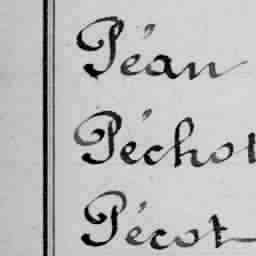 Péan
Péchot
Pécot